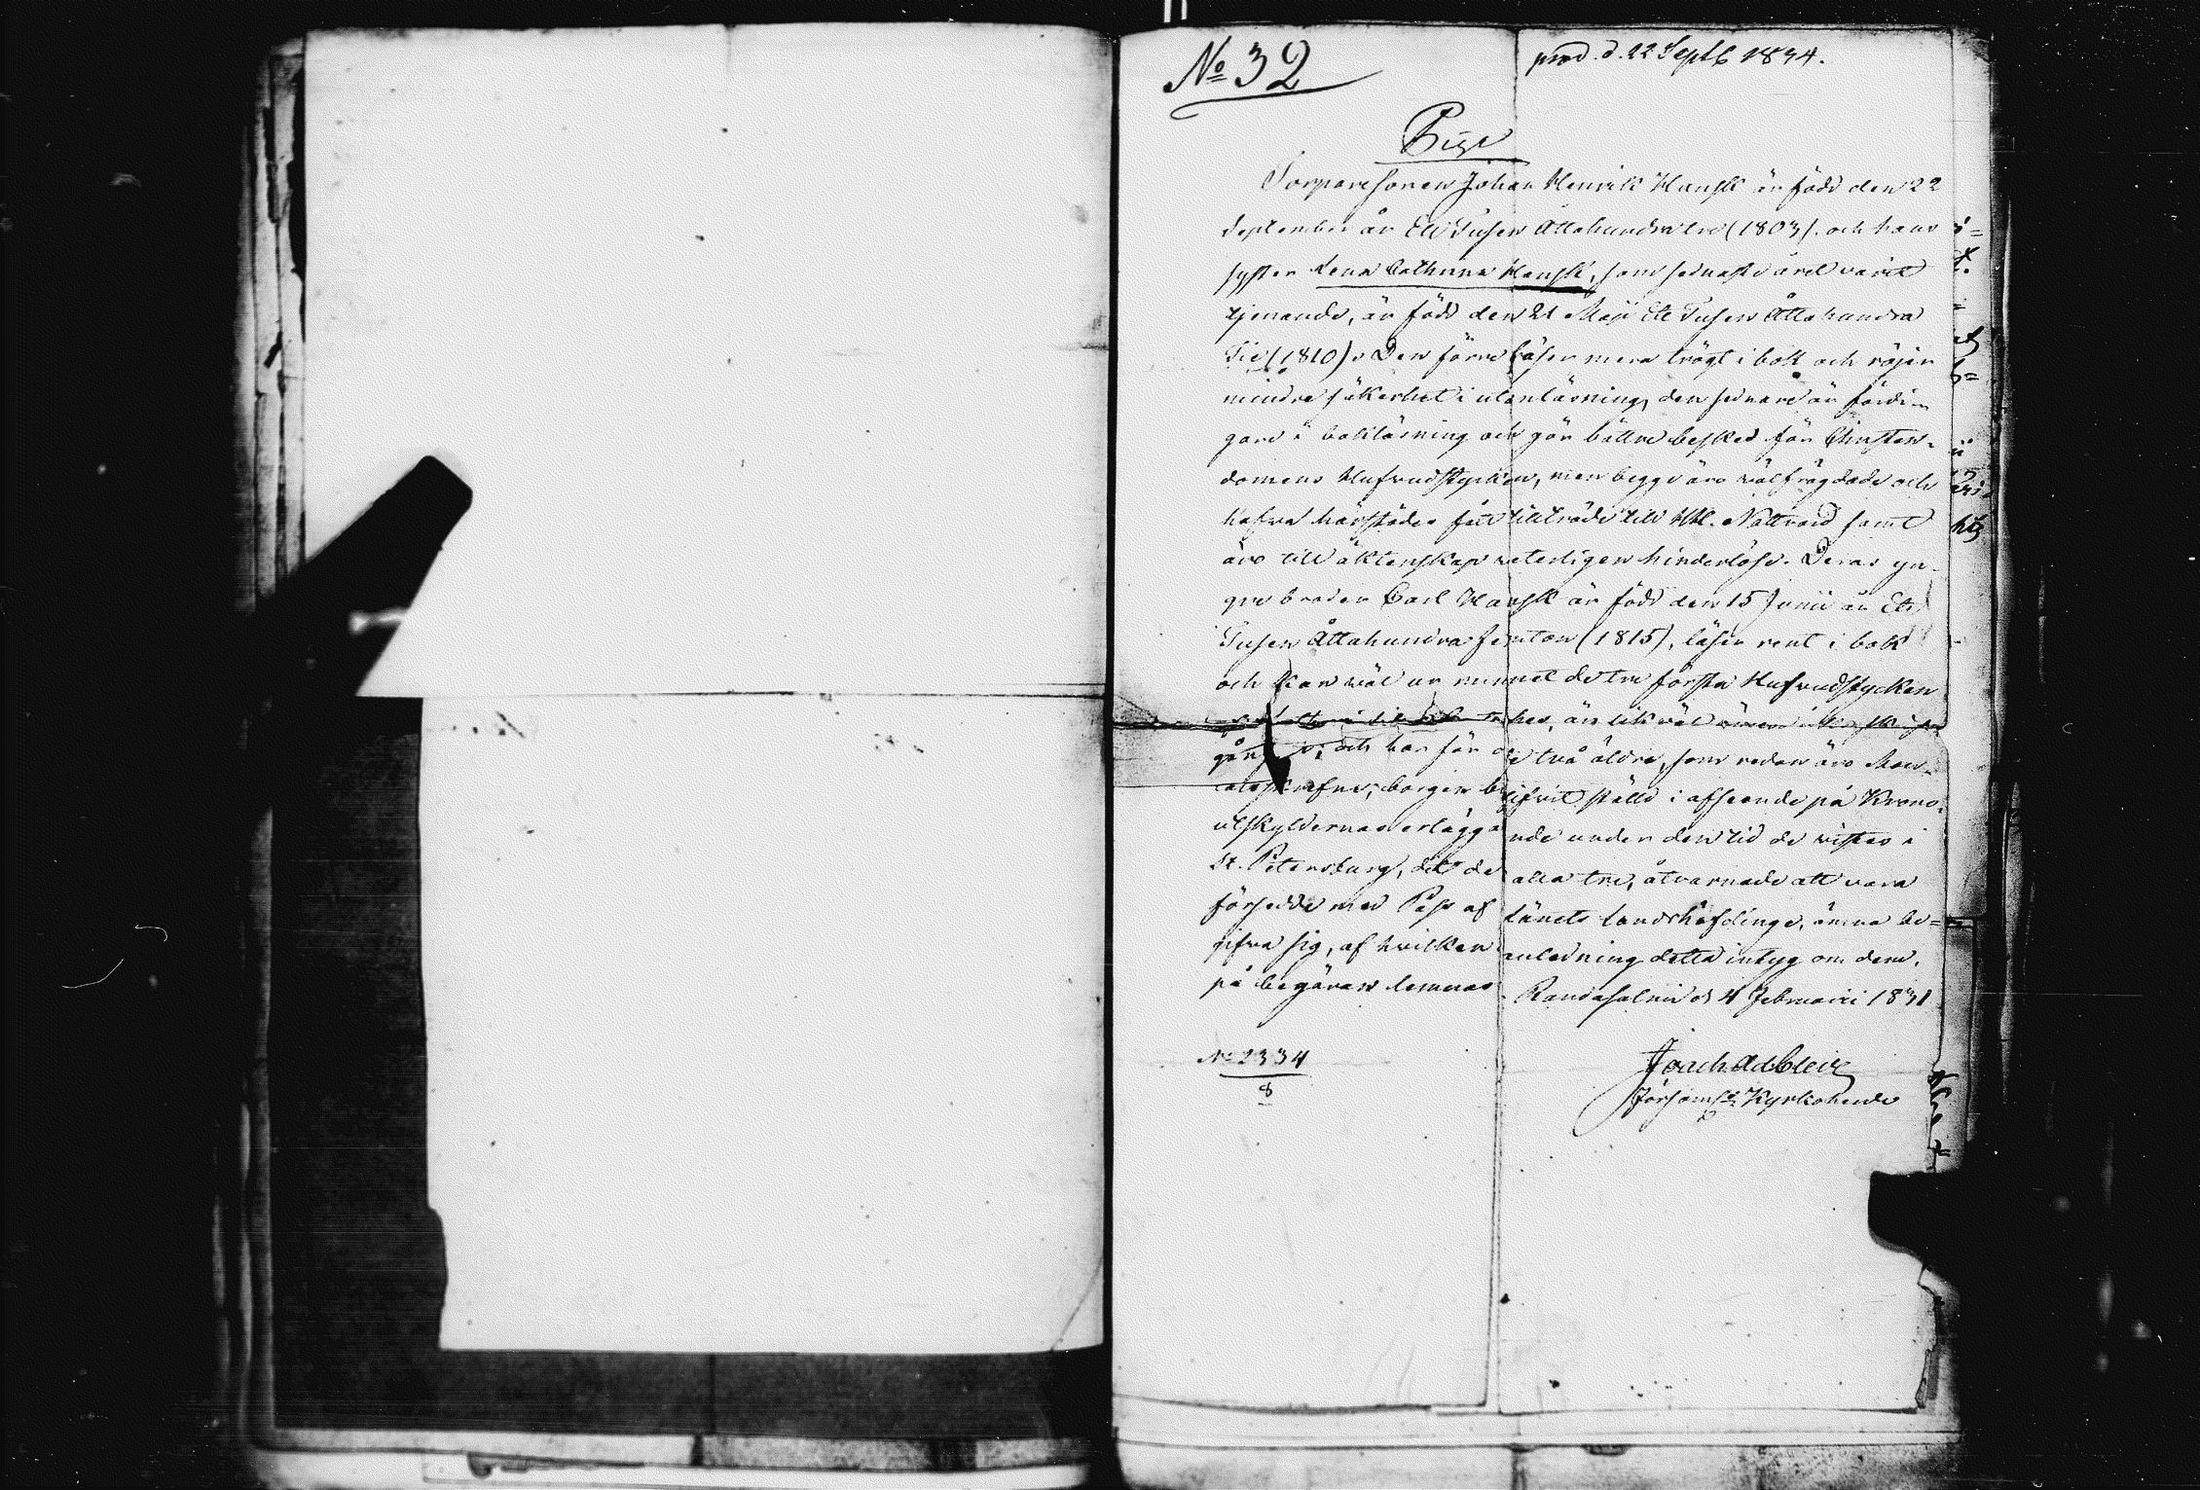 No 32
prod. d. 22 Septb 1834.
Bevis
Torparesonen Johan Henrik Hansk är född den 22
September år Ett Tusen Åttahundra tre (1803). och hans
syster Lena Cathrina Hansk, som sednaste året varit
tjenande, är född den 21 Maji Ett Tusen Åttahundra
Tio (1810). Den förre läser mera trögt i bok och röjer
mindre säkerhet i utanläsning, den sednare är färdi-
gare i bokläsning och gör bättre besked för Christen-
domens Hufvudstycken, men begge äro välfrägdade och
hafva härstädes fått tillträde till HH. Nattvard samt
äro till äktenskap veterligen hinderlöse. Deras yn-
gre broder Carl Hansk är född den 15 Junii år Ett
Tusen Åttahundra femton (1815), läser rent i bok
och kan väl ur minnet de tre första Hufvudstycken
är likväl
och har för de två äldre, som redan äro Man-
talskrefne, borgen blifvit ställd i afseende på Krono-
utskyldernas erläggande under den tid de vistas i
St. Petersburg, dit de alla tre, åtvarnade att vara
försedde med Pass af Länets Landshöfdinge, ämna be-
gifva sig, af hvilken anledning detta intyg om dem,
på begäran lemnas. Randasalmi d. 4 Februarii 1831
No 2334
8
Joach. Ad. Cleve
Församls Kyrkoherde